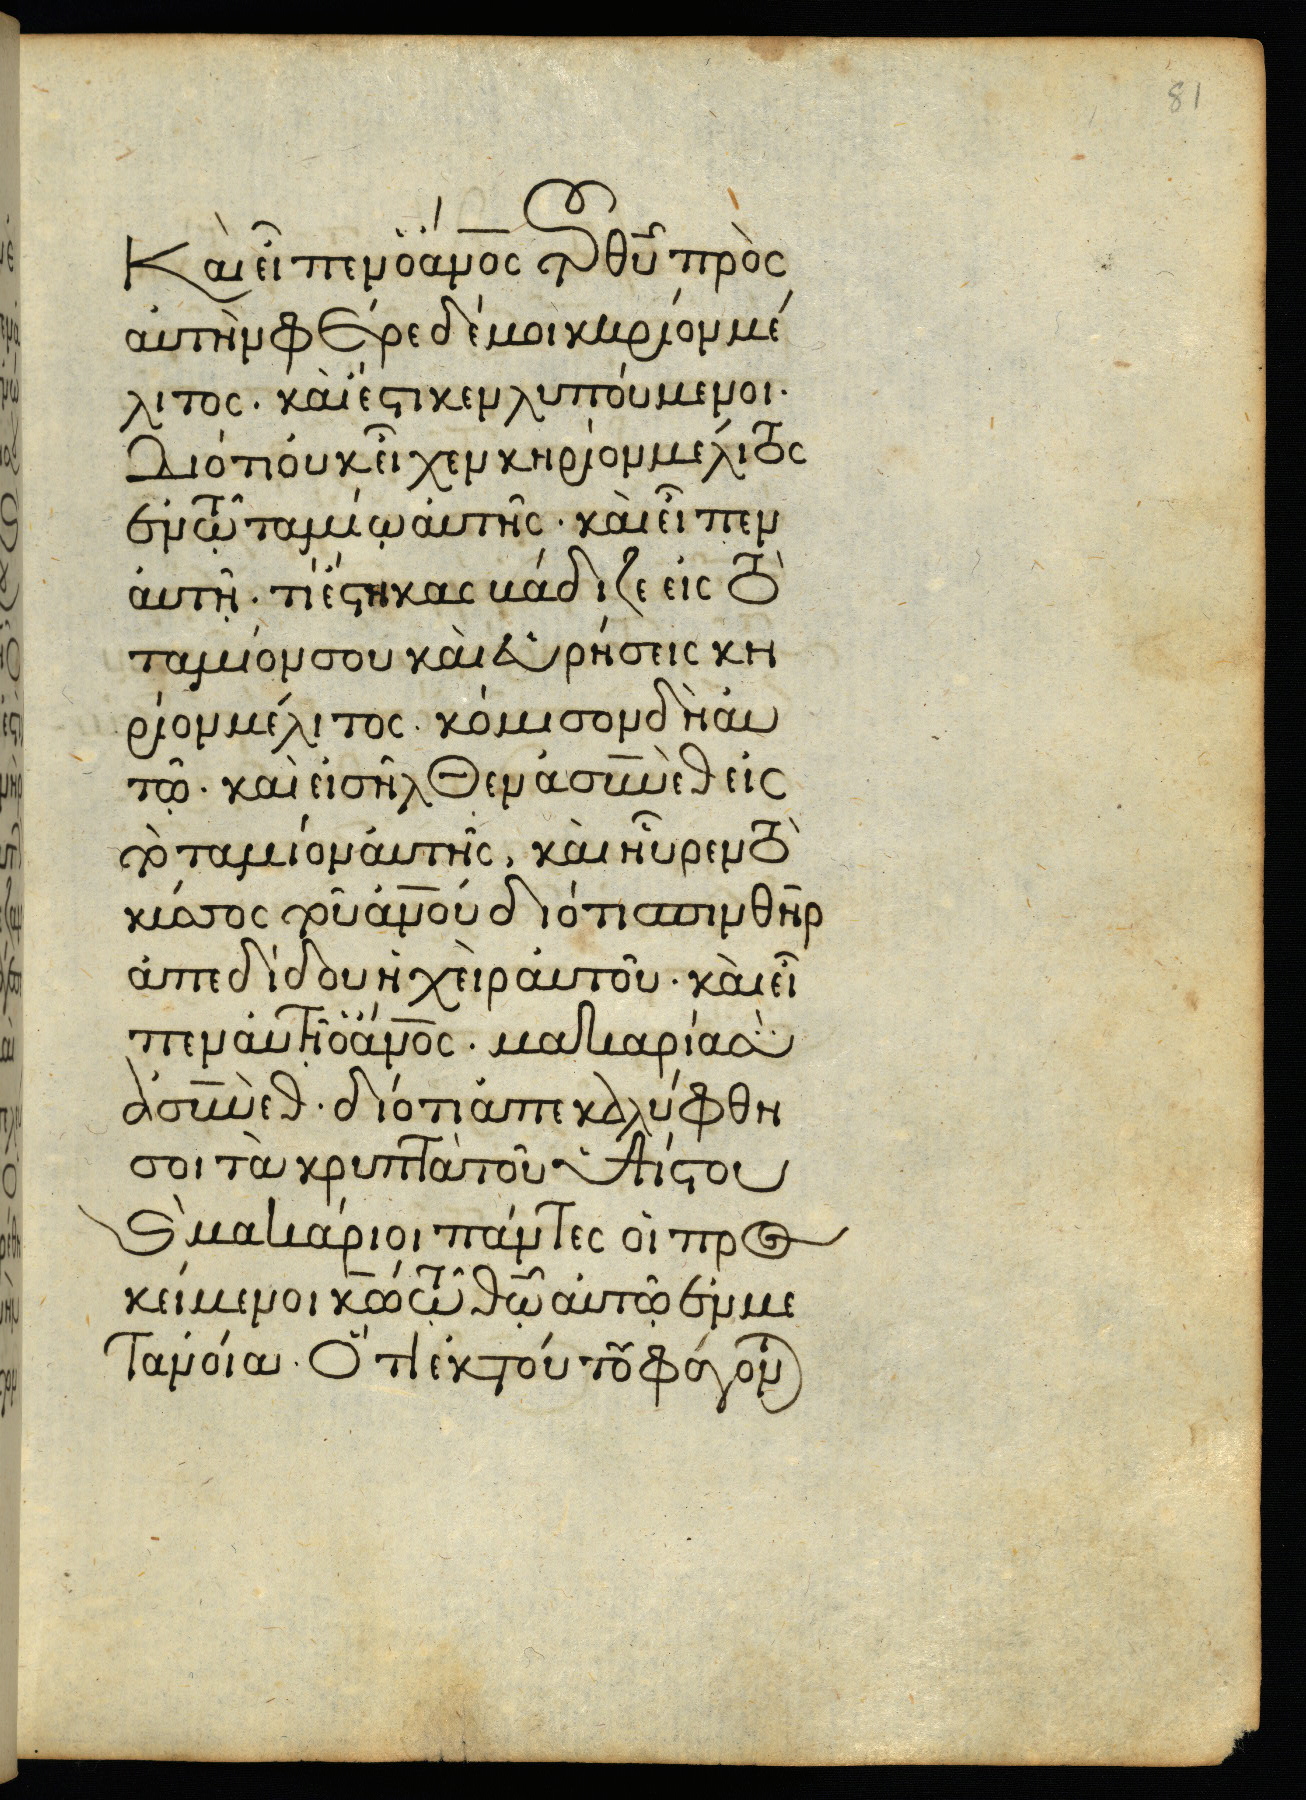 81
Καὶ εἶπεν ὁ ἄνος τοῦ θυ πρὸς
αὐτὴν φέρε δέ μοι κηρίον μέ
λιτος. καὶ ἔστηκεν λυπούμενοι.
Διότι οὐκ εἶχεν κηρίον μέλιτος
ἐν τῷ ταμίῳ αὐτῆς. καὶ εἶπεν
αὐτῇ. τί ἔστηκας βάδιζε εἰς τὸ
ταμίον σου καὶ εὑρήσεις κη
ρίον μέλιτος. κόμισον δὴ αὐ
τῷ. καὶ εἰσῆλθεν ἀσενὲθ εἰς
τὸ ταμίον αὐτῆς, καὶ ηὗρεν τὸ
τοῦ ἀνού διότι
ἀπεδίδου ἡ χεὶρ αὐτοῦ. καὶ εἶ
πεν αὐτῇ ὁ ἄνος. μακαρία εἶ
ἀσενὲθ. διότι ἀπεκαλύφθη
σοι τὰ κρυπτὰ τοῦ ὑψίστου
καὶ μακάριοι πάντες οἱ προ
κείμενοι κῷ τῷ θῷ αὐτῷ ἐν με
τανοία. Ὅτι ἐκ τού του φάγον